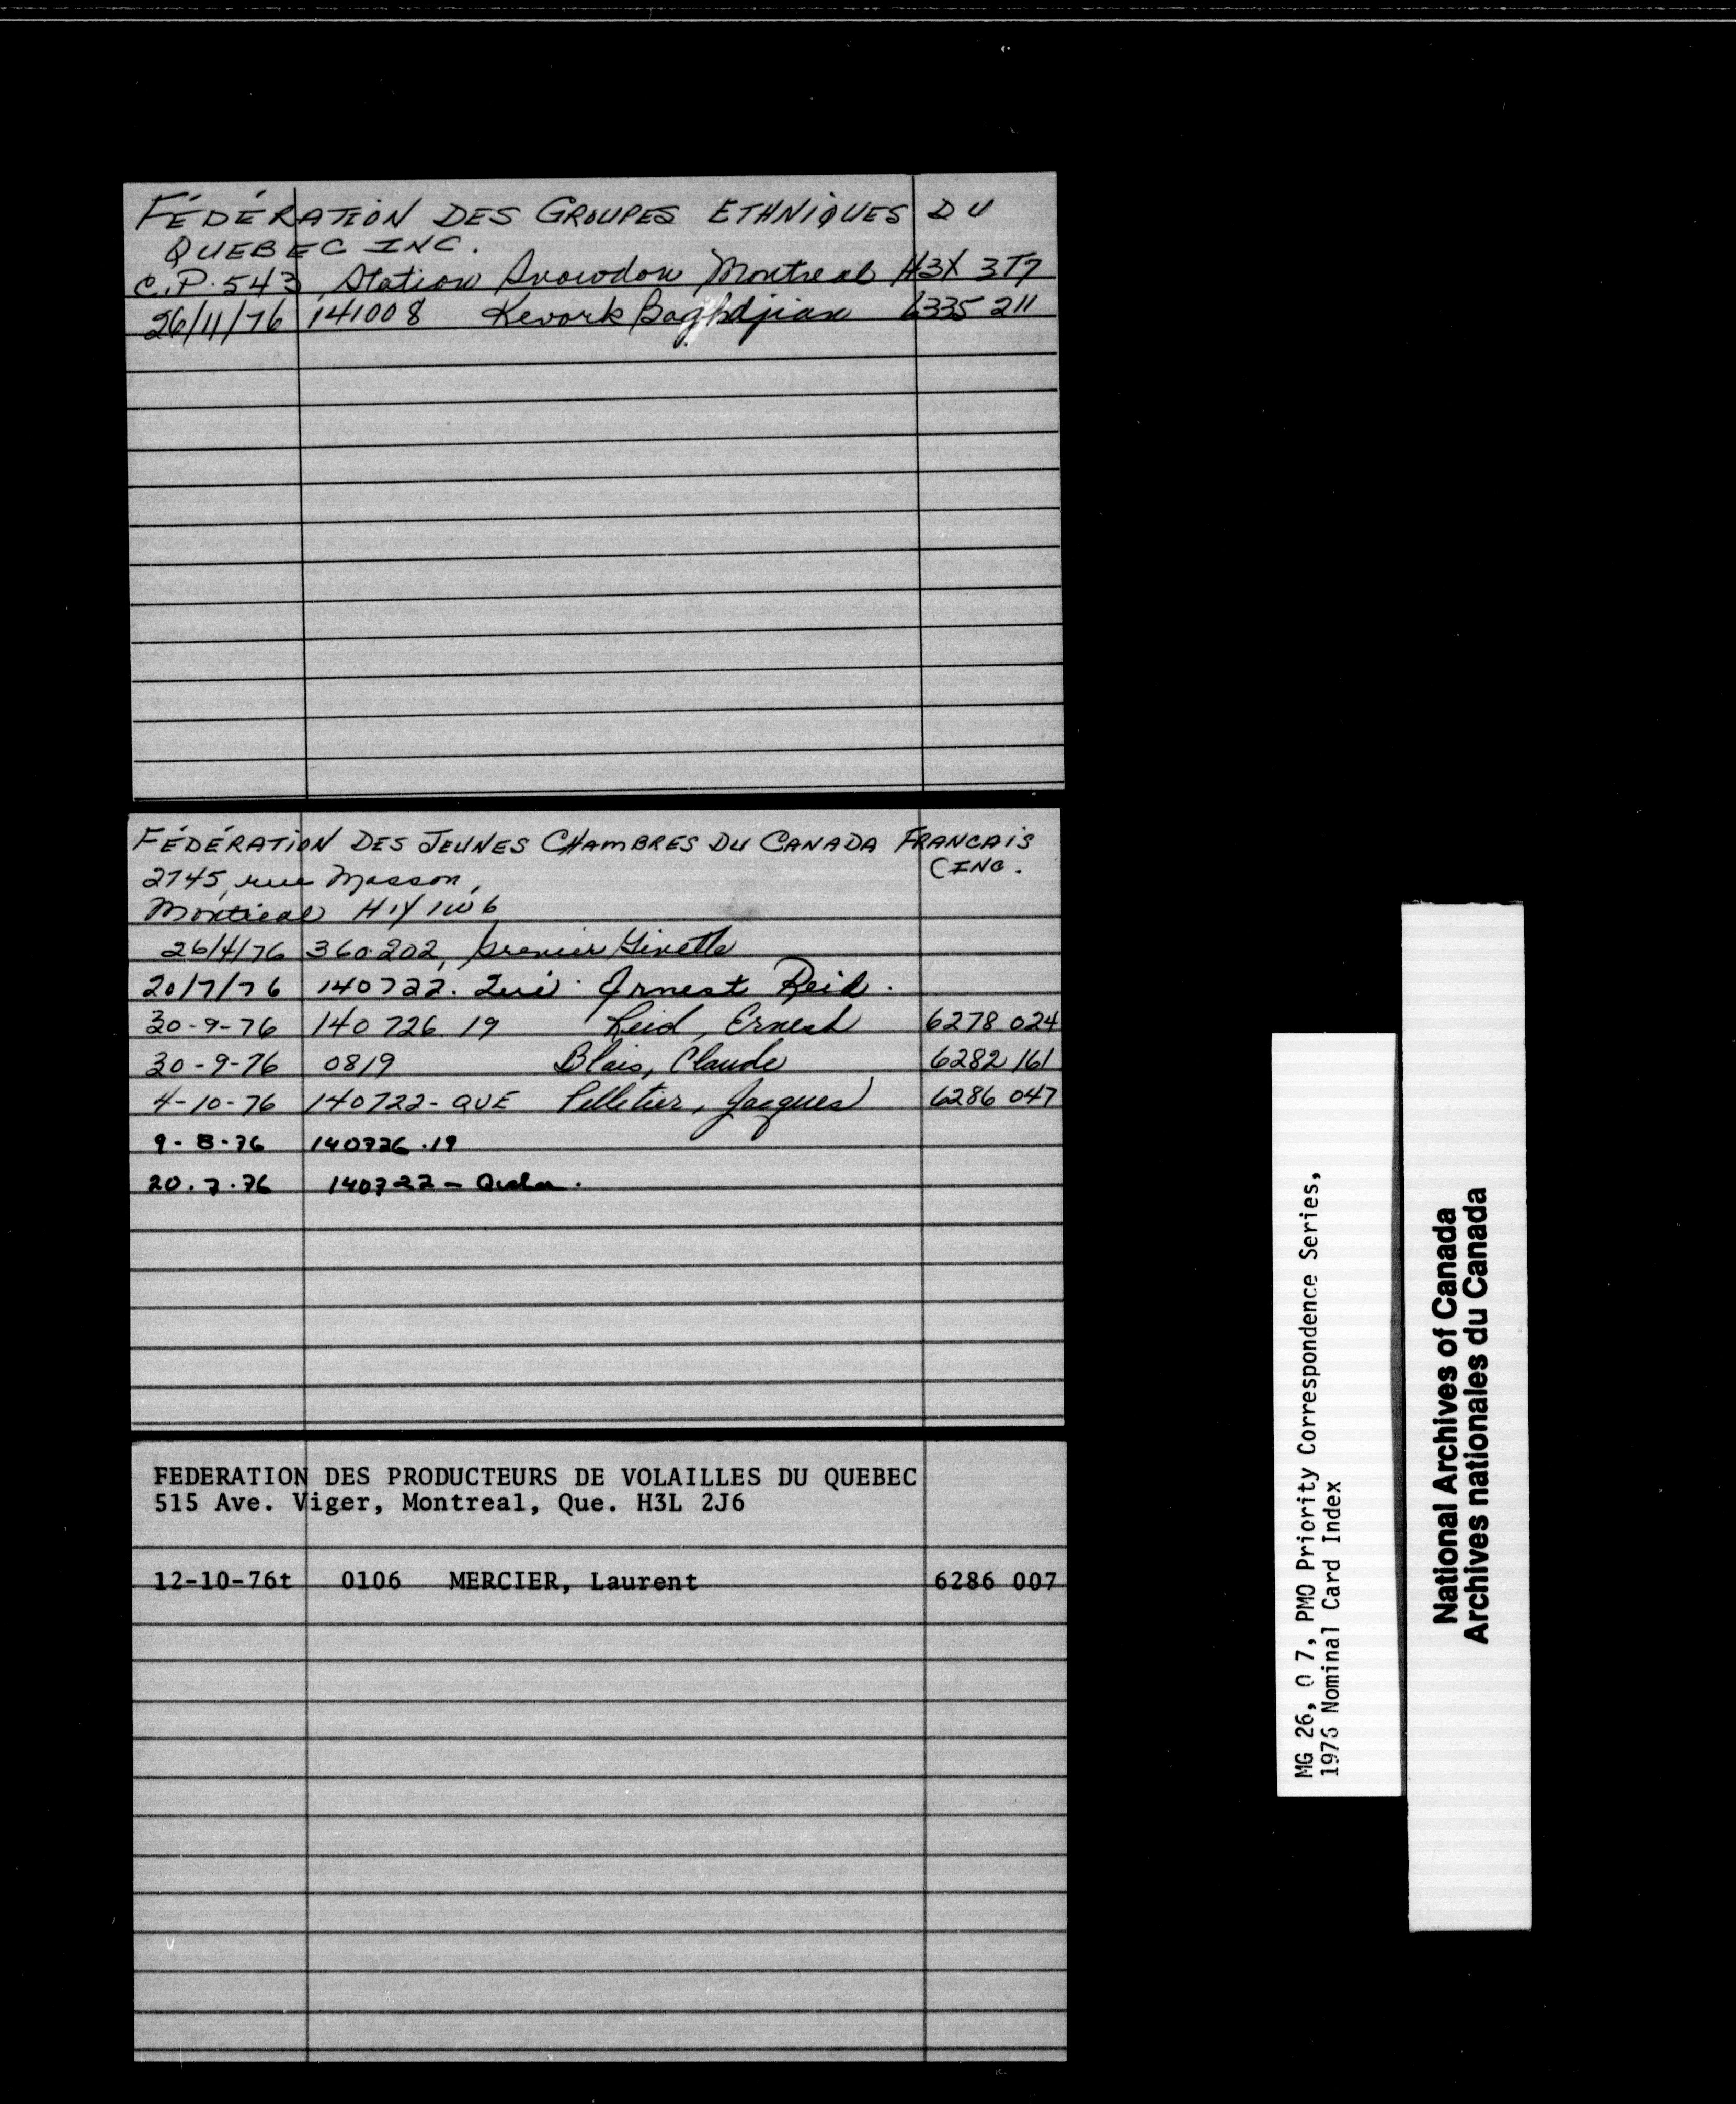 FÉDÉRATION DES GROUPES ETHNIQUES DU
QUEBEC INC.
C.P. 543, Station Snowdon Montreal H3X 3T7
26/11/76 141008 Kevork Baghdjian 6335 211
FÉDÉRATION DES JEUNES CHAMBRES DU CANADA FRANCAIS
(INC.
2745, rue Masson,
Montreal H1Y 1W6
26/4/76 360.202, Grenier Ginette
20/7/76 140722. Ernest Reid.
30-9-76 140 726 19 Reid, Ernest 6278 024
30-9-76 0819 Blais, Claude 6282 161
4-10-76 140722-QUE Pelletier, Jacques 6286 047
9-8-76 140726.19
20.7.76 140722 -
FEDERATION DES PRODUCTEURS DE VOLAILLES DU QUEBEC
515 Ave. Viger, Montreal, Que. H3L 2J6
12-10-76t 0106 MERCIER, Laurent 6286 007
MG 26, O 7, PMO Priority Correspondence Series,
1976 Nominal Card Index
National Archives of Canada
Archives nationales du Canada